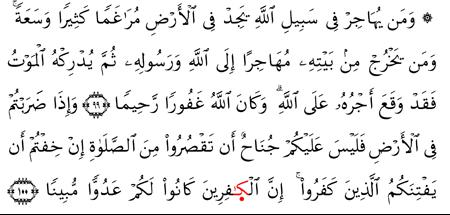 ۞ وَمَن يُهَاجِرْ فِى سَبِيلِ ٱللَّهِ يَجِدْ فِى ٱلْأَرْضِ مُرَٰغَمًا كَثِيرًا وَسَعَةً ۚ
وَمَن يَخْرُجْ مِنۢ بَيْتِهِۦ مُهَاجِرًا إِلَى ٱللَّهِ وَرَسُولِهِۦ ثُمَّ يُدْرِكْهُ ٱلْمَوْتُ
فَقَدْ وَقَعَ أَجْرُهُۥ عَلَى ٱللَّهِ ۗ وَكَانَ ٱللَّهُ غَفُورًا رَّحِيمًا ﴿٩٩﴾ وَإِذَا ضَرَبْتُمْ
فِى ٱلْأَرْضِ فَلَيْسَ عَلَيْكُمْ جُنَاحٌ أَن تَقْصُرُوا۟ مِنَ ٱلصَّلَوٰةِ إِنْ خِفْتُمْ أَن
يَفْتِنَكُمُ ٱلَّذِينَ كَفَرُوٓا۟ ۚ إِنَّ ٱلْكَٰفِرِينَ كَانُوا۟ لَكُمْ عَدُوًّا مُّبِينًا ﴿١٠٠﴾